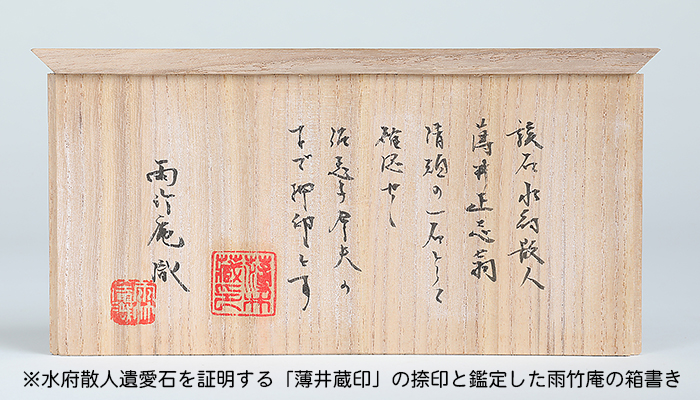 該石水府散人
薄井正志翁
清頑の一石として
確認せし
証志予尽夫の
下で押印とす
雨竹庵 識
薄井
蔵印
※水府散人遺愛石を証明する「薄井蔵印」の捺印と鑑定した雨竹庵の箱書き